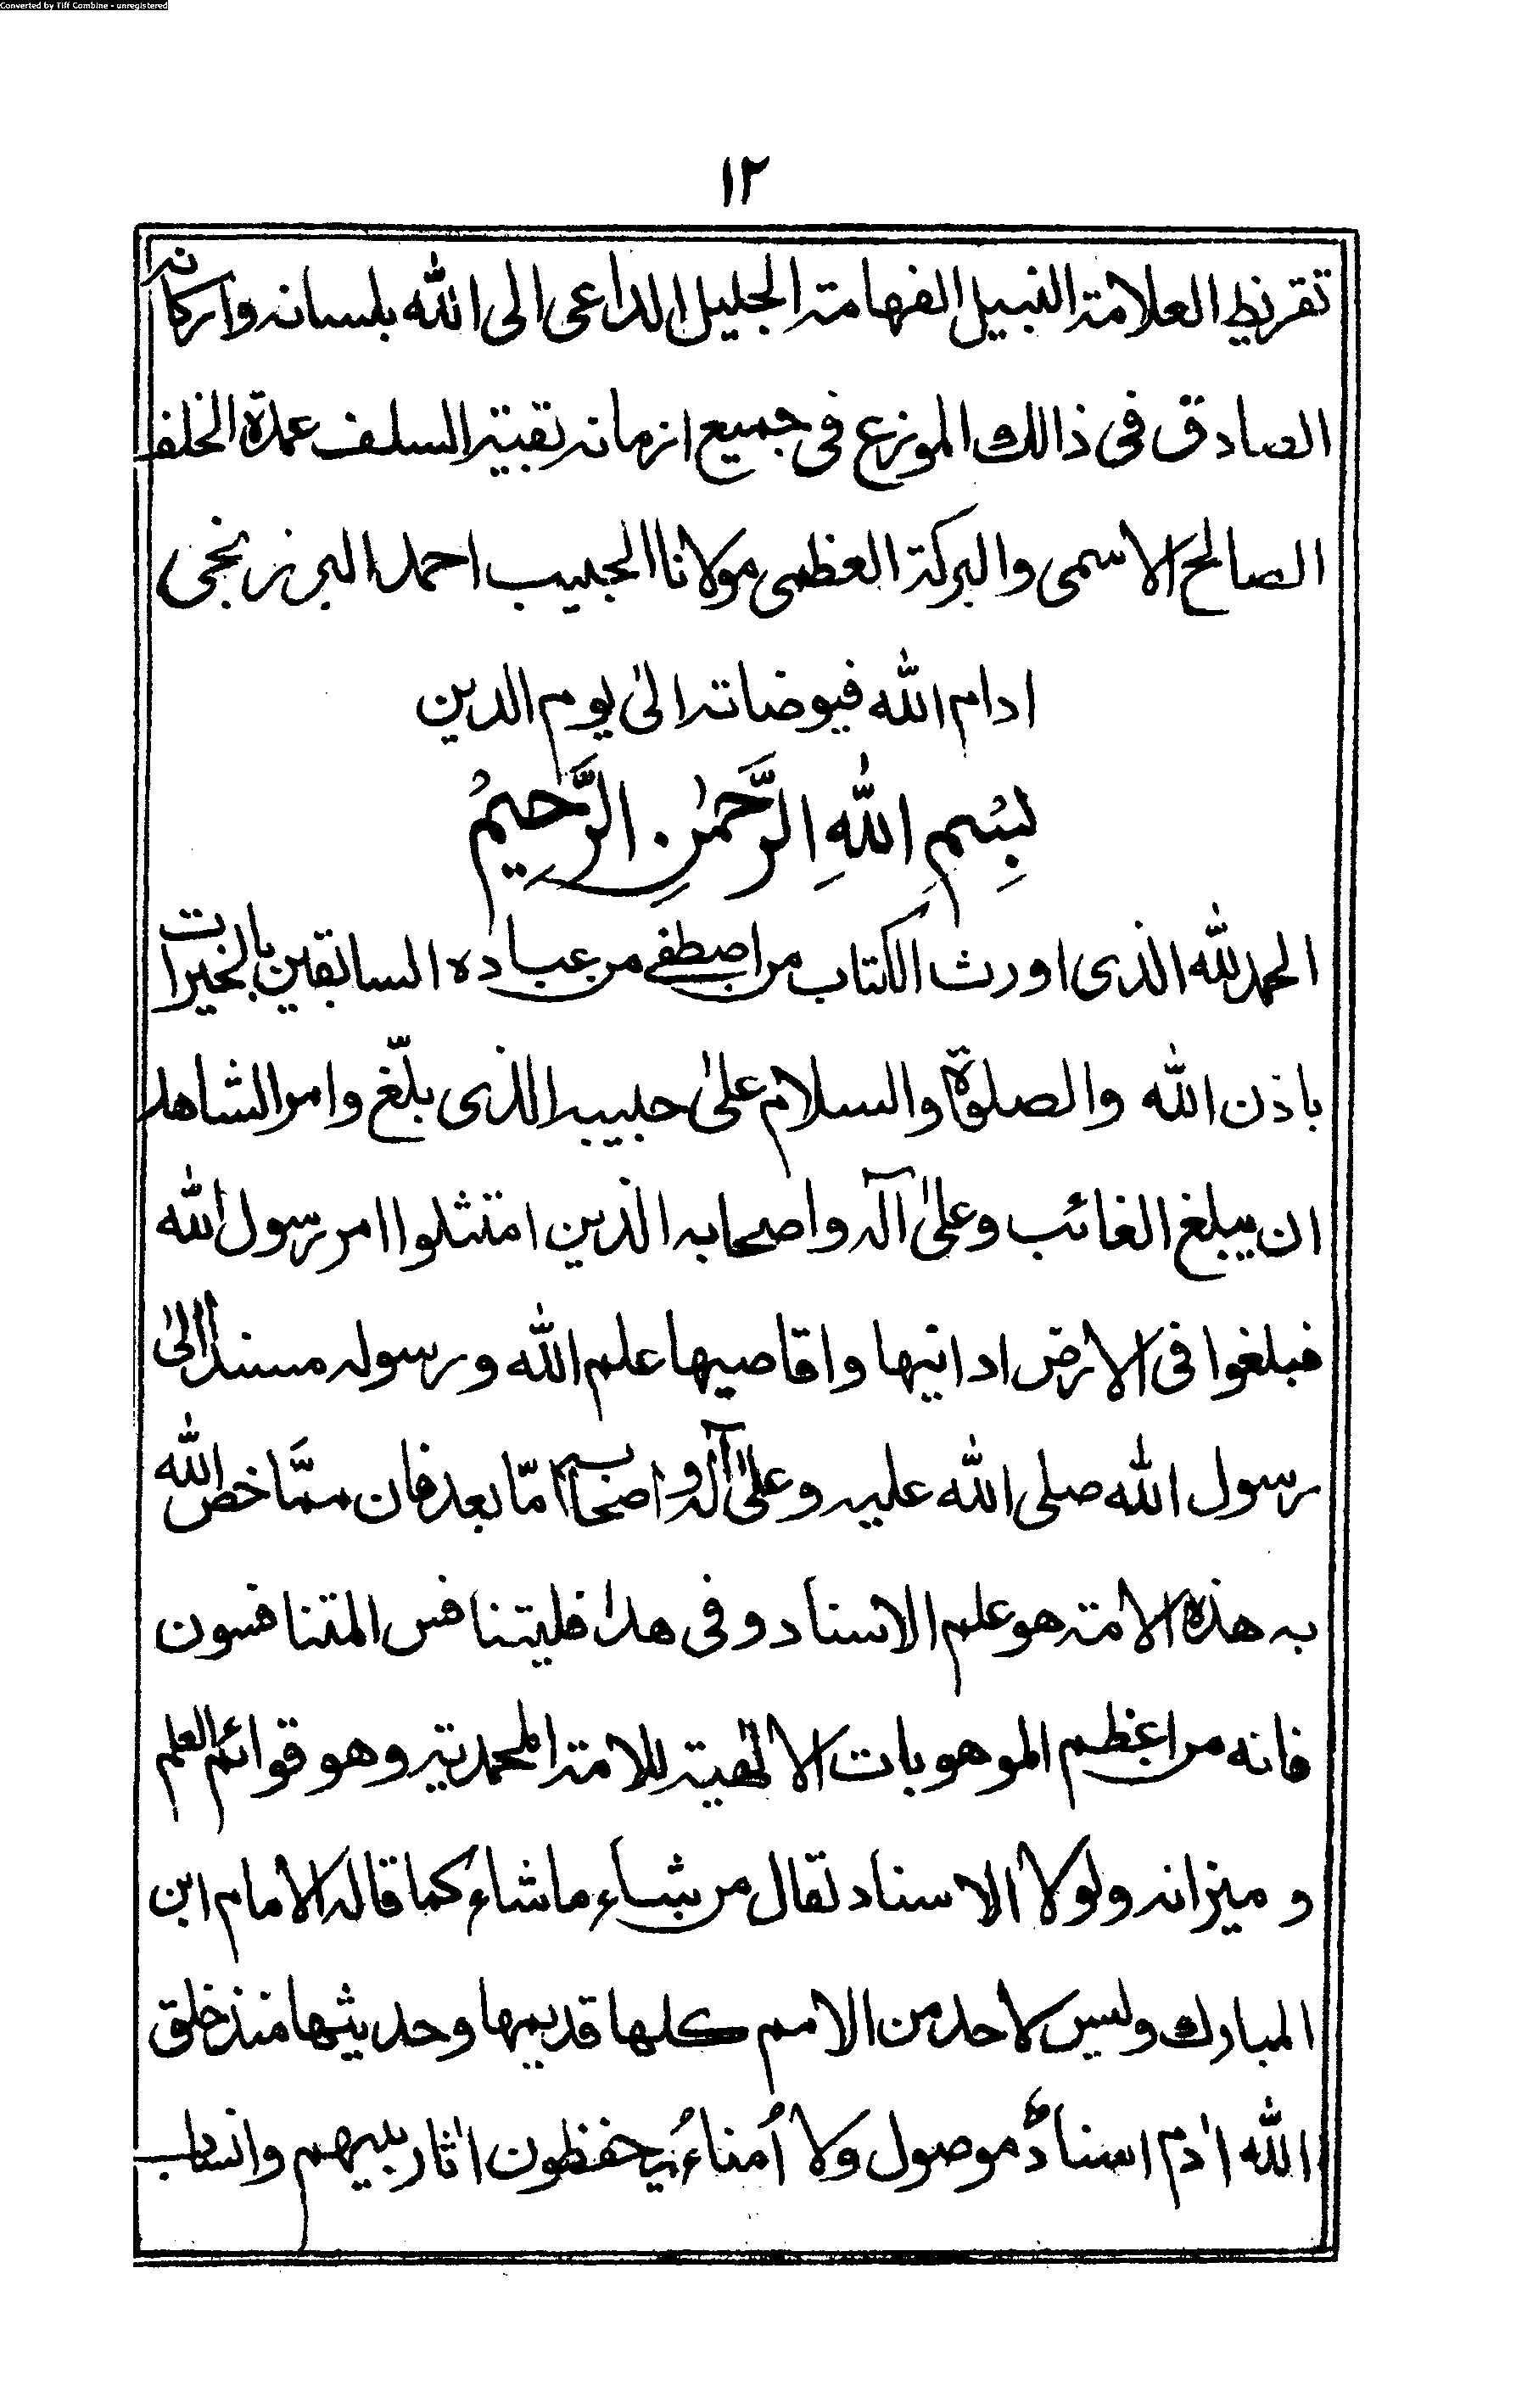 Converted by Tiff Combine - unregistered
١٢
تقريظ العلامة النبيل الفهامة الجليل الداعى الى الله بلسانه واركانه
الصادق فى ذالك الموزع فى جميع ازمانه بقية السلف عمدة الخلف
الصالح الاسمى والبركة العظمى مولانا الحبيب احمد البرزنجى
ادام الله فيوضاته الىٰ يوم الدين
بِسْمِ اللهِ الرَّحمٰنِ الرَّحِيمُ
الحمد لله الذى اورث الكتاب من اصطفے من عباده السابقين بالخيرات
باذن الله والصلوٰة والسلام علىٰ حبيبه الذى بلّغ وامر الشاهد
ان يبلغ الغائب وعلىٰ آله واصحابه الذين امتثلوا امر رسول الله
فبلغوا فى الارض ادانيها واقاصيها علم الله ورسوله مسندا الىٰ
رسول الله صلى الله عليه وعلىٰ آله واصحابه امّا بعد فان ممّا خص الله
به هذه الامة هو علم الاسناد وفى هذا فليتنافس المتنافسون
فانه من اعظم الموهوبات الالٰهية للامة المحمدية وهو قوائم العلم
و ميزانه ولولا الاسناد لقال من شاء ما شاء كما قاله الامام ابن
المبارك وليس لاحد من الامم كلها قديمها وحديثها منذ خلق
الله اٰدم اسنادٌ موصول ولا اُمناءُ يحفظون اٰثار نبيهم وانساب